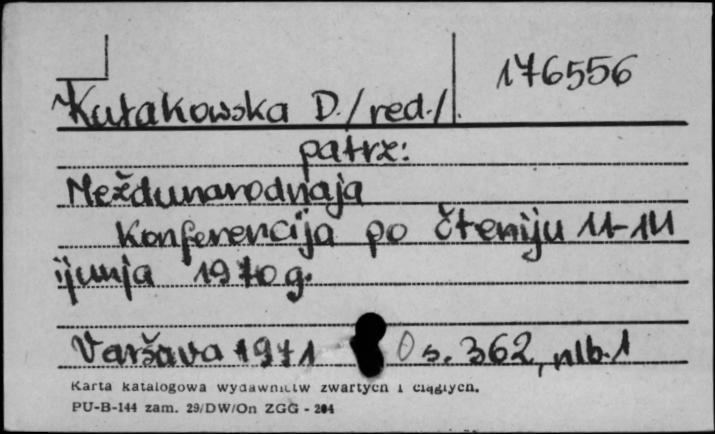 176556
Kułakowska D. /red./.
patrz:
Meždunarodnaja
Konferencija po čteniju 11-14
ijunja 1970 g.
Varšava 1971 s. 362, nlb. 1
Karta katalogowa wydawnictw zwartych i ciągłych.
PU-B-144 zam. 29/DW/On ZGG - 204